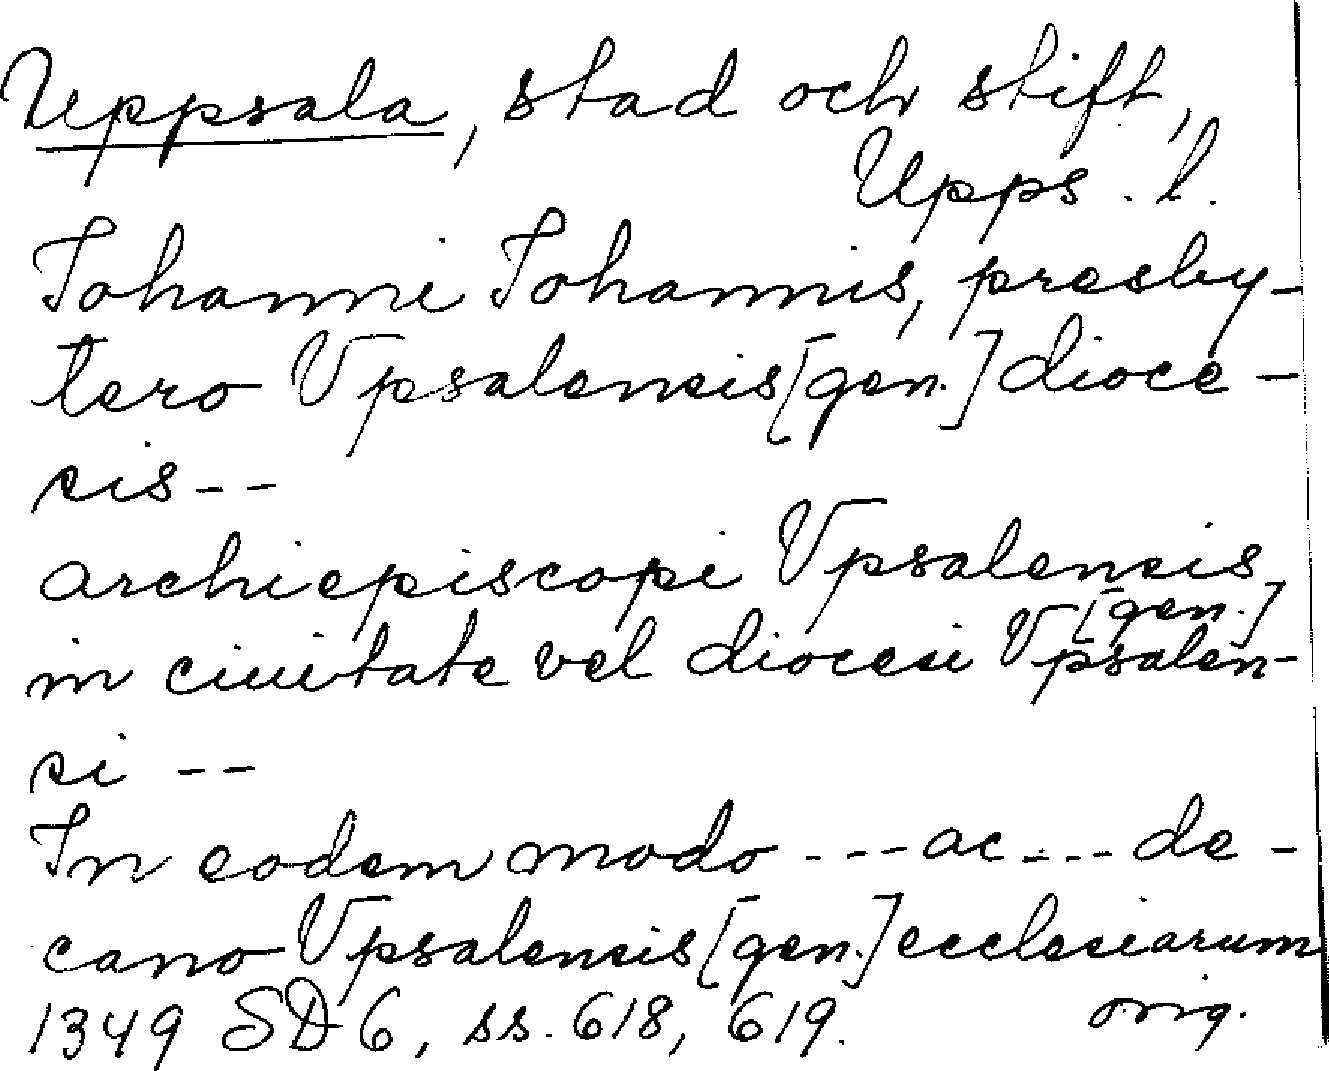 Uppsala, stad och stift,
Upps. l.
Johanni Johannis, presby-
tero Vpsalensis [gen.] dioce-
sis --
archiepiscopi Vpsalensis
[gen.]
in ciuitate vel diocesi Vpsalen-
si --
In eodem modo --- ac --- de-
cano Vpsalensis [gen.] ecclesiarum
1349 SD 6, ss. 618, 619. orig.